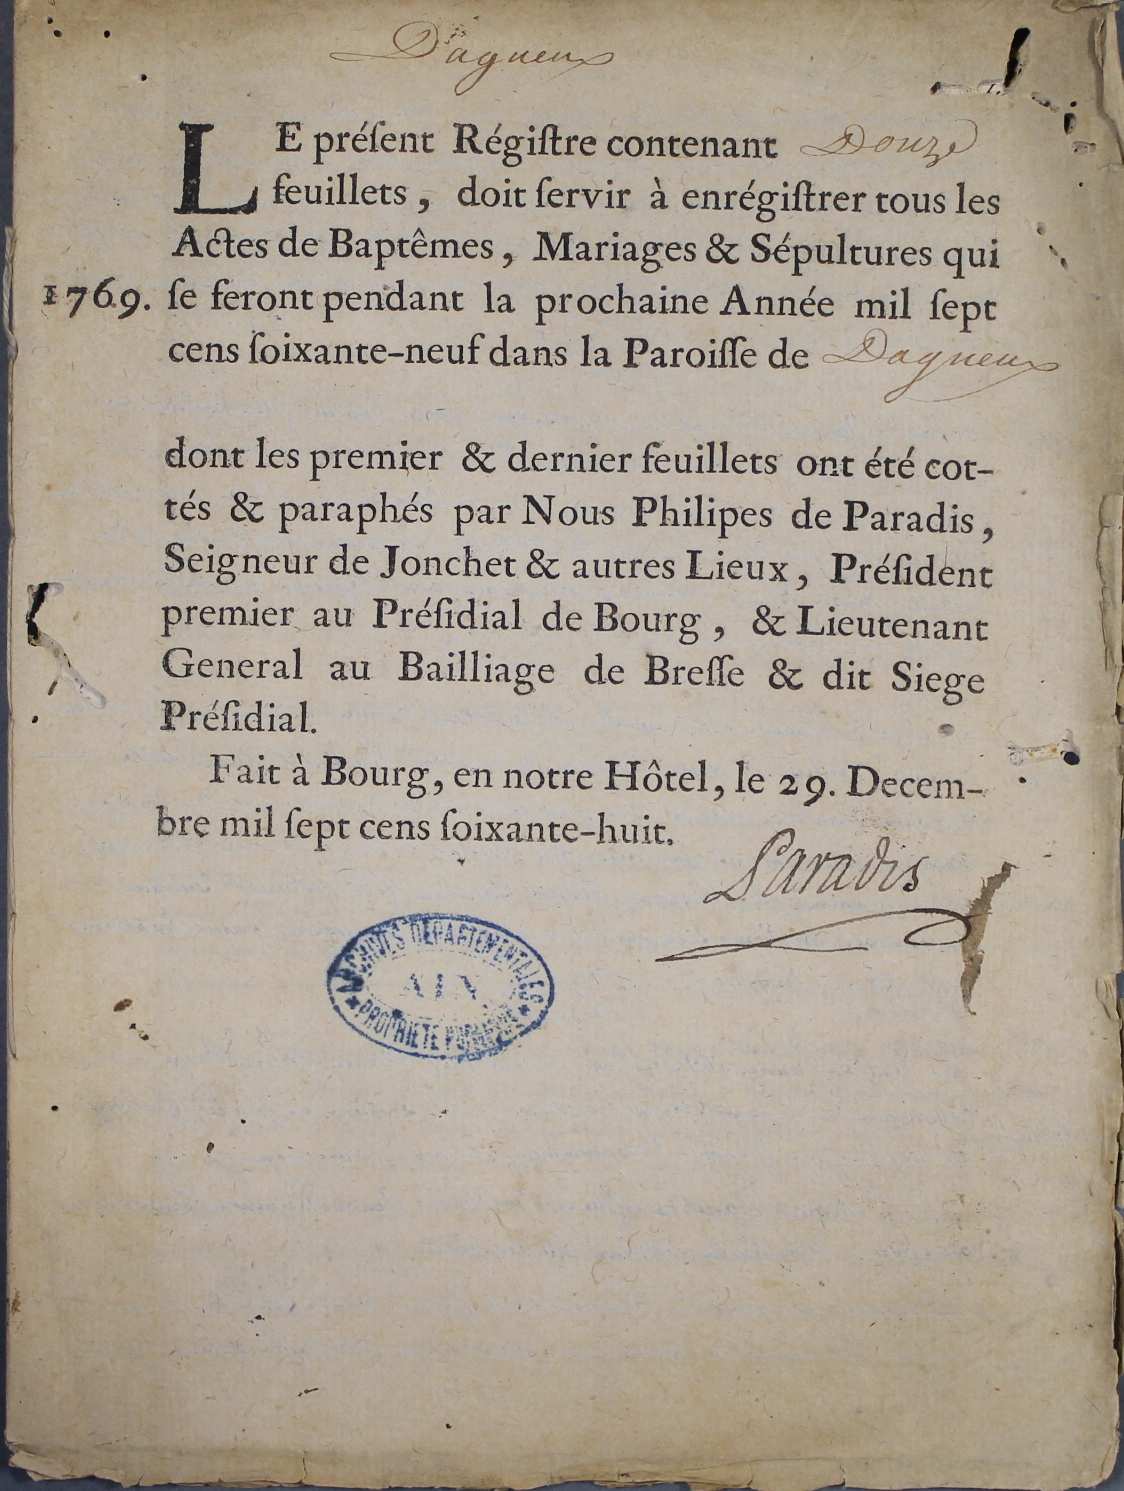 Dagneux
LE préſent Régiſtre contenant Douze
feuillets, doit ſervir à enrégiſtrer tous les
Actes de Baptêmes, Mariages & Sépultures qui
1769. ſe feront pendant la prochaine Année mil ſept
cens ſoixante-neuf dans la Paroiſſe de Dagneux
dont les premier & dernier feuillets ont été cot-
tés & paraphés par Nous Philipes de Paradis,
Seigneur de Jonchet & autres Lieux, Préſident
premier au Préſidial de Bourg, & Lieutenant
General au Bailliage de Breſſe & dit Siege
Préſidial.
Fait à Bourg, en notre Hôtel, le 29. Decem-
bre mil ſept cens ſoixante-huit.
Paradis
ARCHIVES DÉPARTEMENTALES
AIN
PROPRIÉTÉ PUBLIQUE